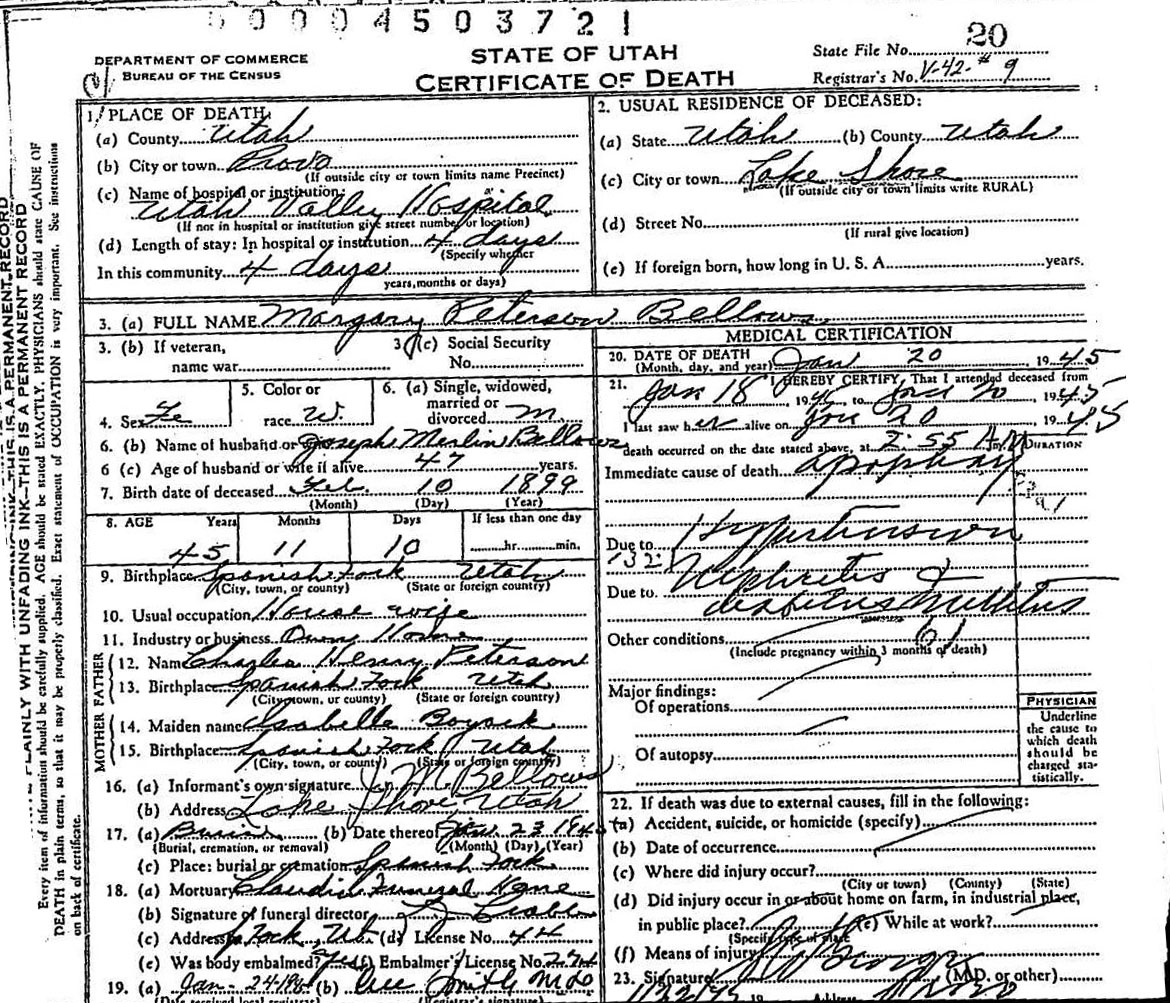 0004503721
DEPARTMENT OF COMMERCE
BUREAU OF THE CENSUS
STATE OF UTAH
CERTIFICATE OF DEATH
State File No. 20
Registrar's No. V-42-#9
THIS IS A PERMANENT RECORD
PLAINLY WITH UNFADING INK—THIS IS A PERMANENT RECORD
Every item of information should be carefully supplied. AGE should be stated EXACTLY. PHYSICIANS should state CAUSE OF
DEATH in plain terms, so that it may be properly classified. Exact statement of OCCUPATION is very important. See instructions
on back of certificate.
1. PLACE OF DEATH:
(a) County Utah
(b) City or town Provo
(If outside city or town limits name Precinct)
(c) Name of hospital or institution:
Utah Valley Hospital
(If not in hospital or institution give street number or location)
(d) Length of stay: In hospital or institution 4 days
(Specify whether
In this community 4 days
years, months or days)
2. USUAL RESIDENCE OF DECEASED:
(a) State Utah (b) County Utah
(c) City or town Lake Shore
(If outside city or town limits write RURAL)
(d) Street No.
(If rural give location)
(e) If foreign born, how long in U. S. A. years.
3. (a) FULL NAME Margary Peterson Bellows
3. (b) If veteran,
name war
3 (c) Social Security
No.
4. Sex Fe
5. Color or
race W.
6. (a) Single, widowed,
married or
divorced m.
6. (b) Name of husband or Joseph Merlin Bellows
6 (c) Age of husband or wife if alive 47 years.
7. Birth date of deceased Feb. 10 1899
(Month) (Day) (Year)
8. AGE Years Months Days If less than one day
45 11 10 hr. min.
9. Birthplace Spanish Fork Utah
(City, town, or county) (State or foreign country)
10. Usual occupation House wife
11. Industry or business Own Home
FATHER
12. Name Charles Henry Peterson
13. Birthplace Spanish Fork Utah
(City, town, or county) (State or foreign country)
MOTHER
14. Maiden name Isabelle
15. Birthplace Spanish Fork Utah
(City, town, or county) (State or foreign country)
16. (a) Informant's own signature J. M. Bellows
(b) Address Lake Shore Utah
17. (a) Burial (b) Date thereof Jan 23 194
(Burial, cremation, or removal) (Month) (Day) (Year)
(c) Place: burial or cremation Spanish Fork
18. (a) Mortuary Funeral Home
(b) Signature of funeral director
(c) Address Fork, Ut. (d) License No. 44
(e) Was body embalmed? Yes (f) Embalmer's License No.
19. (a) Jan - 24 - 194 (b) Smith
(Date received local registrar) (Registrar's signature)
MEDICAL CERTIFICATION
20. DATE OF DEATH
(Month, day, and year) Jan 20, 1945
21. I HEREBY CERTIFY, That I attended deceased from
Jan 18 1945, to Jan 20, 1945
I last saw her alive on Jan 20 1945
death occurred on the date stated above, at 2:55 A.M. DURATION
Immediate cause of death apoplexy
Due to Hypertension
132
Due to Nephritis &
diabetus Mellitus
Other conditions 61
(Include pregnancy within 3 months of death)
Major findings:
Of operations
Of autopsy
PHYSICIAN
Underline
the cause to
which death
should be
charged sta-
tistically.
22. If death was due to external causes, fill in the following:
(a) Accident, suicide, or homicide (specify)
(b) Date of occurrence
(c) Where did injury occur?
(City or town) (County) (State)
(d) Did injury occur in or about home on farm, in industrial place,
in public place? (e) While at work?
(Specify type of place
(f) Means of injury
23. Signature (M.D. or other)
1/22/45 19 Address Provo